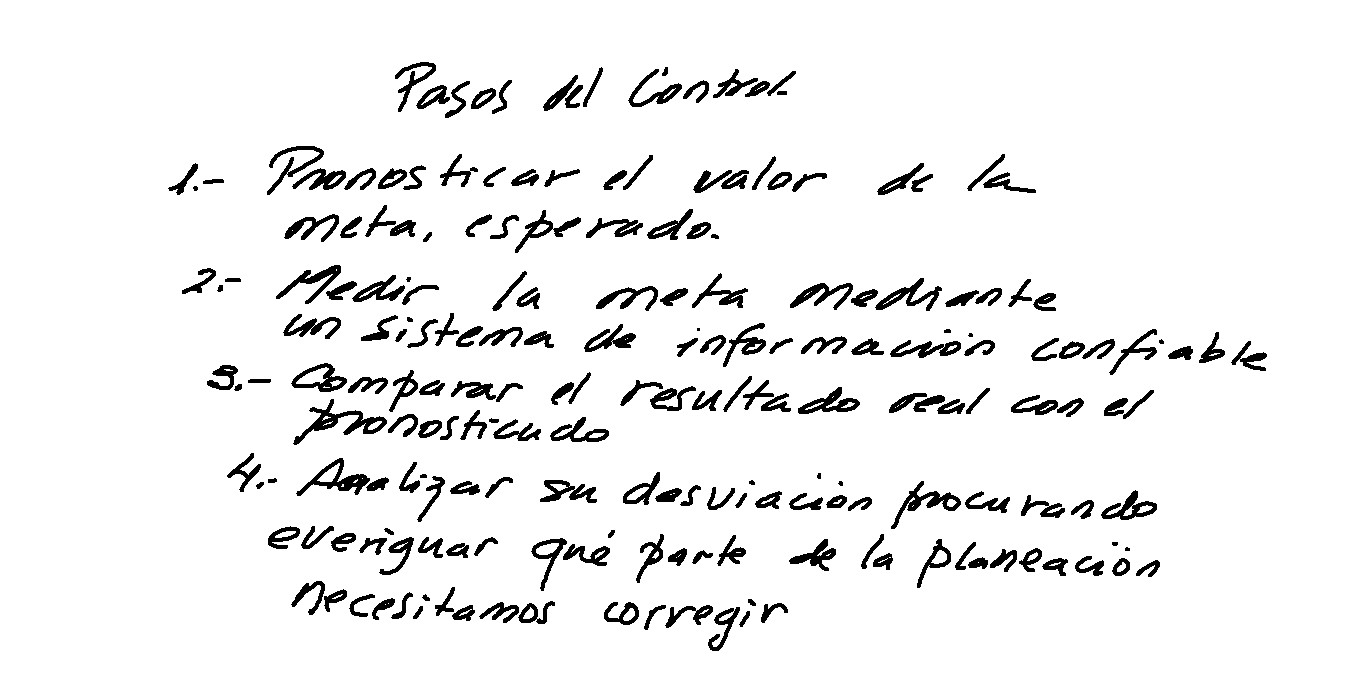 Pasos del Control
1.- Pronosticar el valor de la
meta, esperado.
2.- Medir la meta mediante
un sistema de información confiable
3.- Comparar el resultado real con el
pronosticado
4.- Analizar su desviación procurando
everiguar qué parte de la planeación
necesitamos corregir